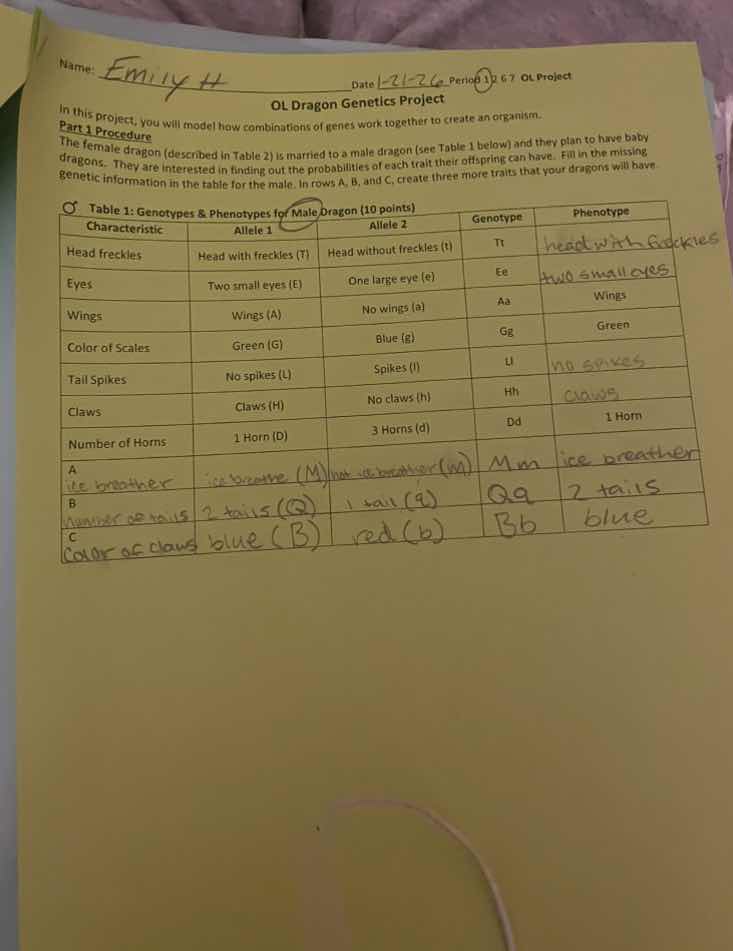 Name: Emily H Date 1-21-26 Period 1 2 6 7 OL Project
OL Dragon Genetics Project
In this project, you will model how combinations of genes work together to create an organism.
Part 1 Procedure
The female dragon (described in Table 2) is married to a male dragon (see Table 1 below) and they plan to have baby
dragons. They are interested in finding out the probabilities of each trait their offspring can have. Fill in the missing
genetic information in the table for the male. In rows A, B, and C, create three more traits that your dragons will have.
♂ Table 1: Genotypes & Phenotypes for Male Dragon (10 points)
Characteristic Allele 1 Allele 2 Genotype Phenotype
Head freckles Head with freckles (T) Head without freckles (t) Tt head with freckles
Eyes Two small eyes (E) One large eye (e) Ee two small eyes
Wings Wings (A) No wings (a) Aa Wings
Color of Scales Green (G) Blue (g) Gg Green
Tail Spikes No spikes (L) Spikes (l) Ll no spikes
Claws Claws (H) No claws (h) Hh claws
Number of Horns 1 Horn (D) 3 Horns (d) Dd 1 Horn
A
ice breather ice breathe (M) not ice breather (m) Mm ice breather
B
number of tails 2 tails (Q) 1 tail (q) Qq 2 tails
C
Color of claws blue (B) red (b) Bb blue